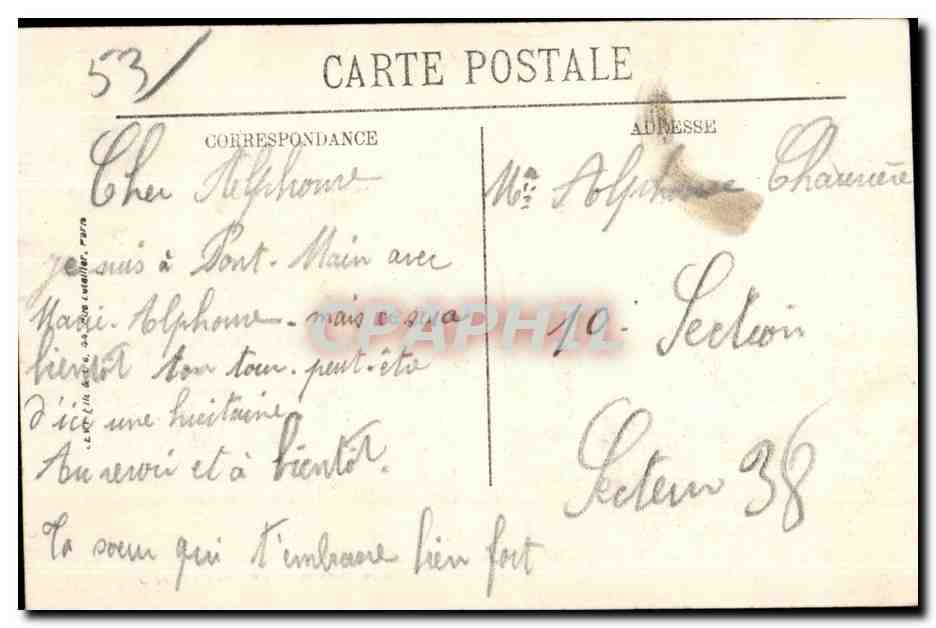 53/
CARTE POSTALE
CORRESPONDANCE
ADRESSE
Cher Alphonse
je suis à Pont-Main avec
Marie-Alphonse - mais ce sera
bientôt ton tour - peut-être
d'ici une huitaine.
Au revoir et à bientôt.
Ta sœur qui t'embrasse bien fort
Alphonse
10 - Section
Secteur 38
CPAPHIL
Paris